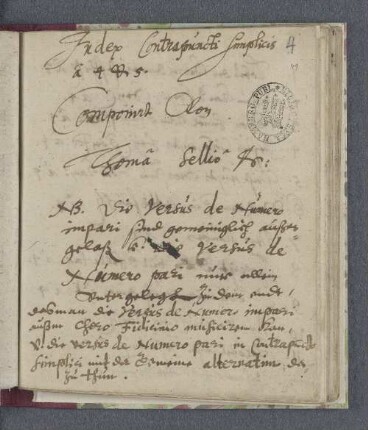 Index Contrapuncti simplicis 4
à 4 & 5.
Componirt Von
Thomâ Sellio &c:
NB. Die Versus de Numero
impari sind gemeiniglich außen
gelaß die Versus de
Numero pari nur allein
untergelegt zu dem endt,
das man die Versus de Numero impari
Choro Fidicinio musiciren kan,
die Versus de Numero pari in Contrapuncto
simplici mit der Gemeine alternatim
zu thun.